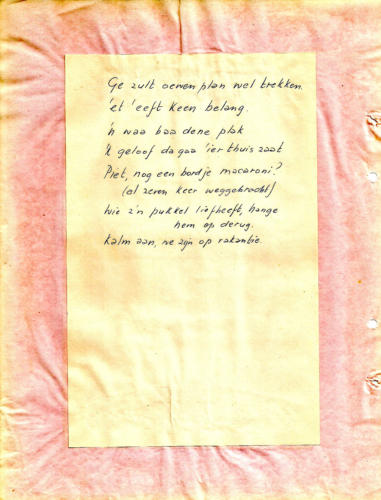 Ge zult oewen plan wel trekken.
'et 'eeft keen belang.
'n waa baa dene plak
'k geloof da gaa 'ier thuis zaat
Piet, nog een bordje macaroni?
(al zeven keer weggebracht)
Wie z'n pukkel liefheeft, hange
hem op de rug.
Kalm aan, we zijn op vakantie.